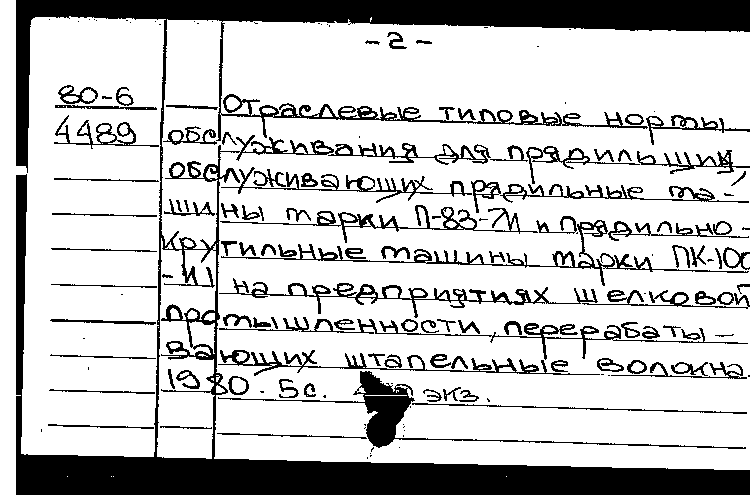 - 2 -
80-6 Отраслевые типовые нормы
4489 обслуживания для прядильщиц,
обслуживающих прядильные ма-
шины марки П-83-7И и прядильно-
крутильные машины марки ПК-100
-И1 на предприятиях шелковой
промышленности, перерабаты-
вающих штапельные волокна.
1980. 5с. экз.